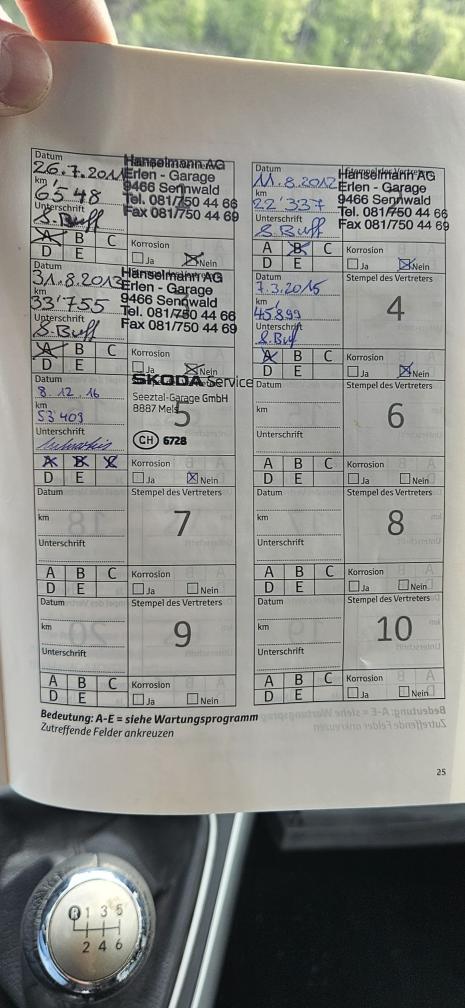 Datum
26.7.2011
km
6'548
Unterschrift
S.Buff
Hanselmann AG
Erlen - Garage
9466 Sennwald
Tel. 081/750 44 66
Fax 081/750 44 69
A B C
D E
Korrosion
Ja Nein
Datum
11.8.2012
km
22'337
Unterschrift
S.Buff
Hanselmann AG
Erlen - Garage
9466 Sennwald
Tel. 081/750 44 66
Fax 081/750 44 69
A B C
D E
Korrosion
Ja Nein
Datum
31.8.2013
km
33'755
Unterschrift
S.Buff
Hanselmann AG
Erlen - Garage
9466 Sennwald
Tel. 081/750 44 66
Fax 081/750 44 69
A B C
D E
Korrosion
Ja Nein
Datum
7.3.2015
km
45899
Unterschrift
S.Buff
Stempel des Vertreters
4
A B C
D E
Korrosion
Ja Nein
Datum
8.12.16
km
53'403
Unterschrift
SKODA Service
Seeztal-Garage GmbH
8887 Mels
5
CH 6728
A B C
D E
Korrosion
Ja Nein
Datum
km
Unterschrift
Stempel des Vertreters
6
A B C
D E
Korrosion
Ja Nein
Datum
km
Unterschrift
Stempel des Vertreters
7
A B C
D E
Korrosion
Ja Nein
Datum
km
Unterschrift
Stempel des Vertreters
8
A B C
D E
Korrosion
Ja Nein
Datum
km
Unterschrift
Stempel des Vertreters
9
A B C
D E
Korrosion
Ja Nein
Datum
km
Unterschrift
Stempel des Vertreters
10
A B C
D E
Korrosion
Ja Nein
Bedeutung: A-E = siehe Wartungsprogramm
Zutreffende Felder ankreuzen
25
R 1 3 5
2 4 6